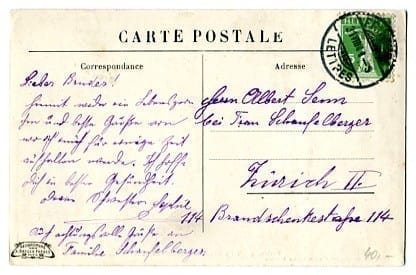 CARTE POSTALE
Correspondance
Adresse
LETTRES
Lieber Bruder!
Hiermit wieder ein Lebenszei-
chen und beste Grüßen von
wo ich mich für einige Zeit
aufhalten werde. Ich hoffe
Dich in bester Gesundheit.
Deine Schwester
114
Hochachtungsvolle Grüße an
Familie Schaufelberger
Herrn Albert Senn
bei Frau Schaufelberger
Zürich II.
Brandschenkestraße 114
40,-